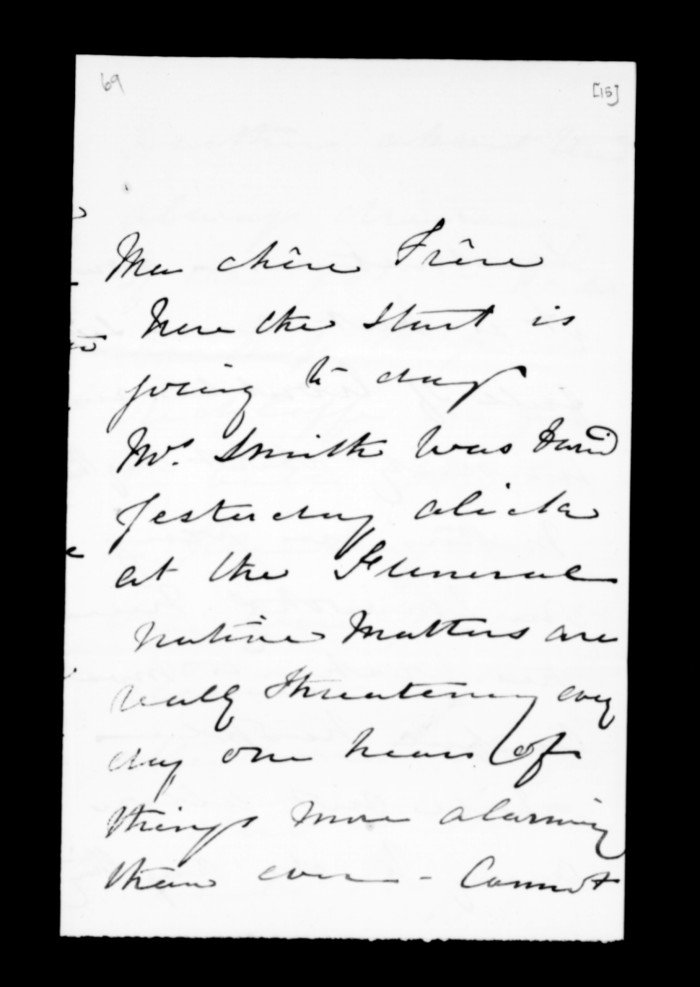 69
[15]
Mon chère Frère
Here the Sturt is
going to day
Mrs. Smith was buried
yesterday
at the Funeral
Native Matters are
really threatening every
day one hears of
things more alarming
than ever - Cannot